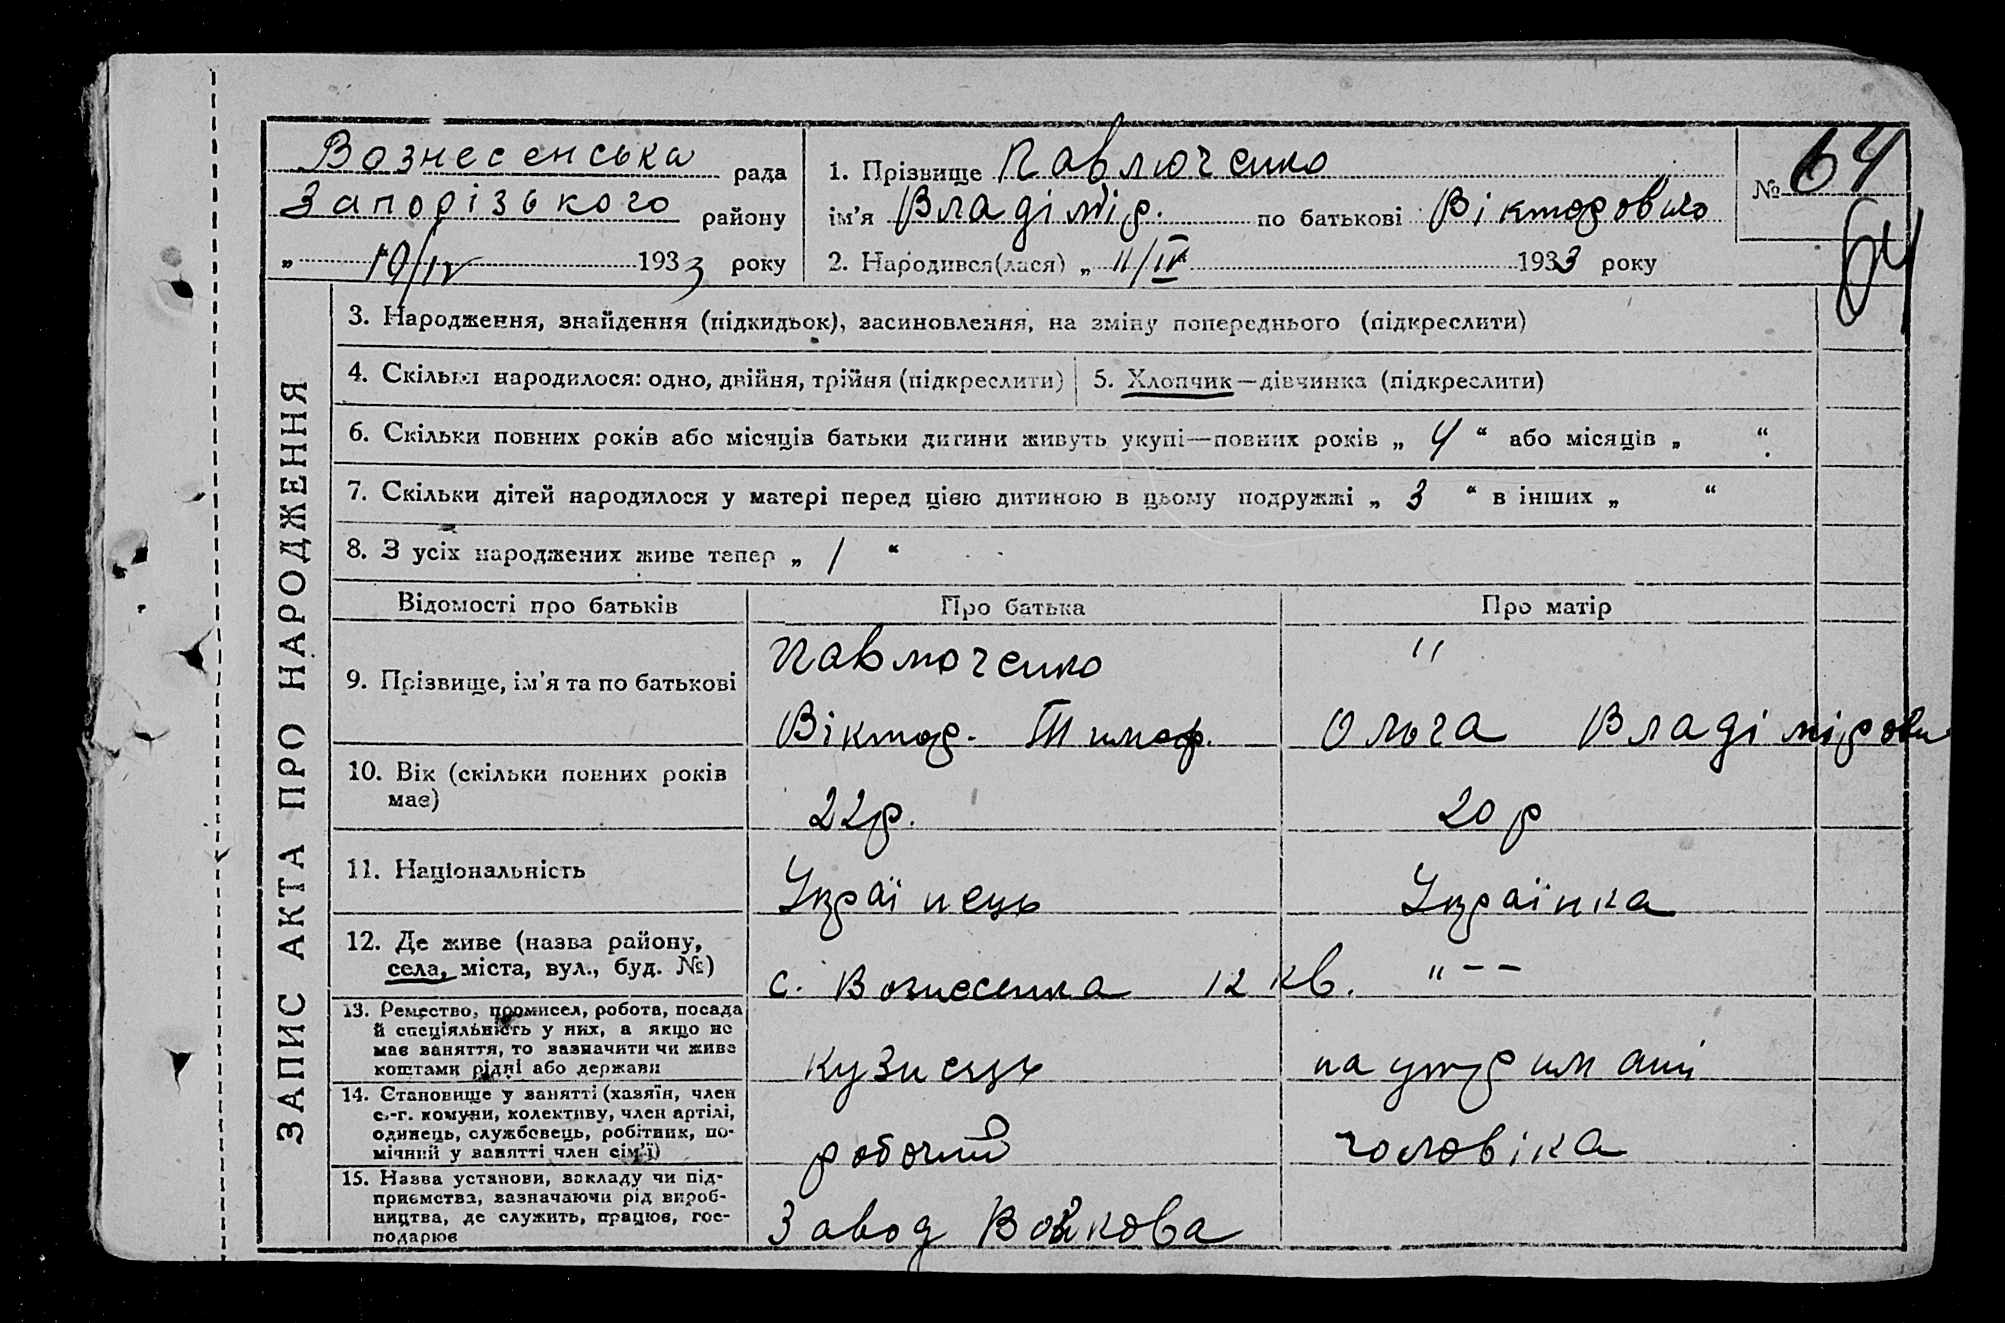 Вознесенська рада
Запорізького району
„ 10/IV 1933 року
1. Прізвище Павлюченко
ім’я Владімір. по батькові Вікторович
2. Народився(лася) „ 11/IV 1933 року
№ 64
64
ЗАПИС АКТА ПРО НАРОДЖЕННЯ
3. Народження, знайдення (підкидьок), засиновлення, на зміну попереднього (підкреслити)
4. Скільки народилося: одно, двійня, трійня (підкреслити)
5. Хлопчик—дівчинка (підкреслити)
6. Скільки повних років або місяців батьки дитини живуть укупі—повних років „ 4 “ або місяців „ “
7. Скільки дітей народилося у матері перед цією дитиною в цьому подружжі „ 3 “ в інших „ “
8. З усіх народжених живе тепер „ 1 “
Відомості про батьків
Про батька
Про матір
9. Прізвище, ім’я та по батькові
Павлюченко
Віктор. Тимоф.
"
Ольга Владіміровн
10. Вік (скільки повних років
має)
22р.
20 р
11. Національність
Українець
Українка
12. Де живе (назва району,
села, міста, вул., буд. №)
с. Вознесенка 12 кв.
" – –
13. Ремество, промисел, робота, посада
й спеціяльність у них, а якщо не
має заняття, то зазначити чи живе
коштами рідні або держави
кузнець
на утриманні
14. Становище у занятті (хазяїн, член
с.-г. комуни, колективу, член артілі,
одинець, службовець, робітник, по-
мічний у занятті член сім’ї)
робочий
чоловіка
15. Назва установи, закладу чи під-
приємства, зазначаючи рід вироб-
ництва, де служить, працює, гос-
подарює
Завод Войкова